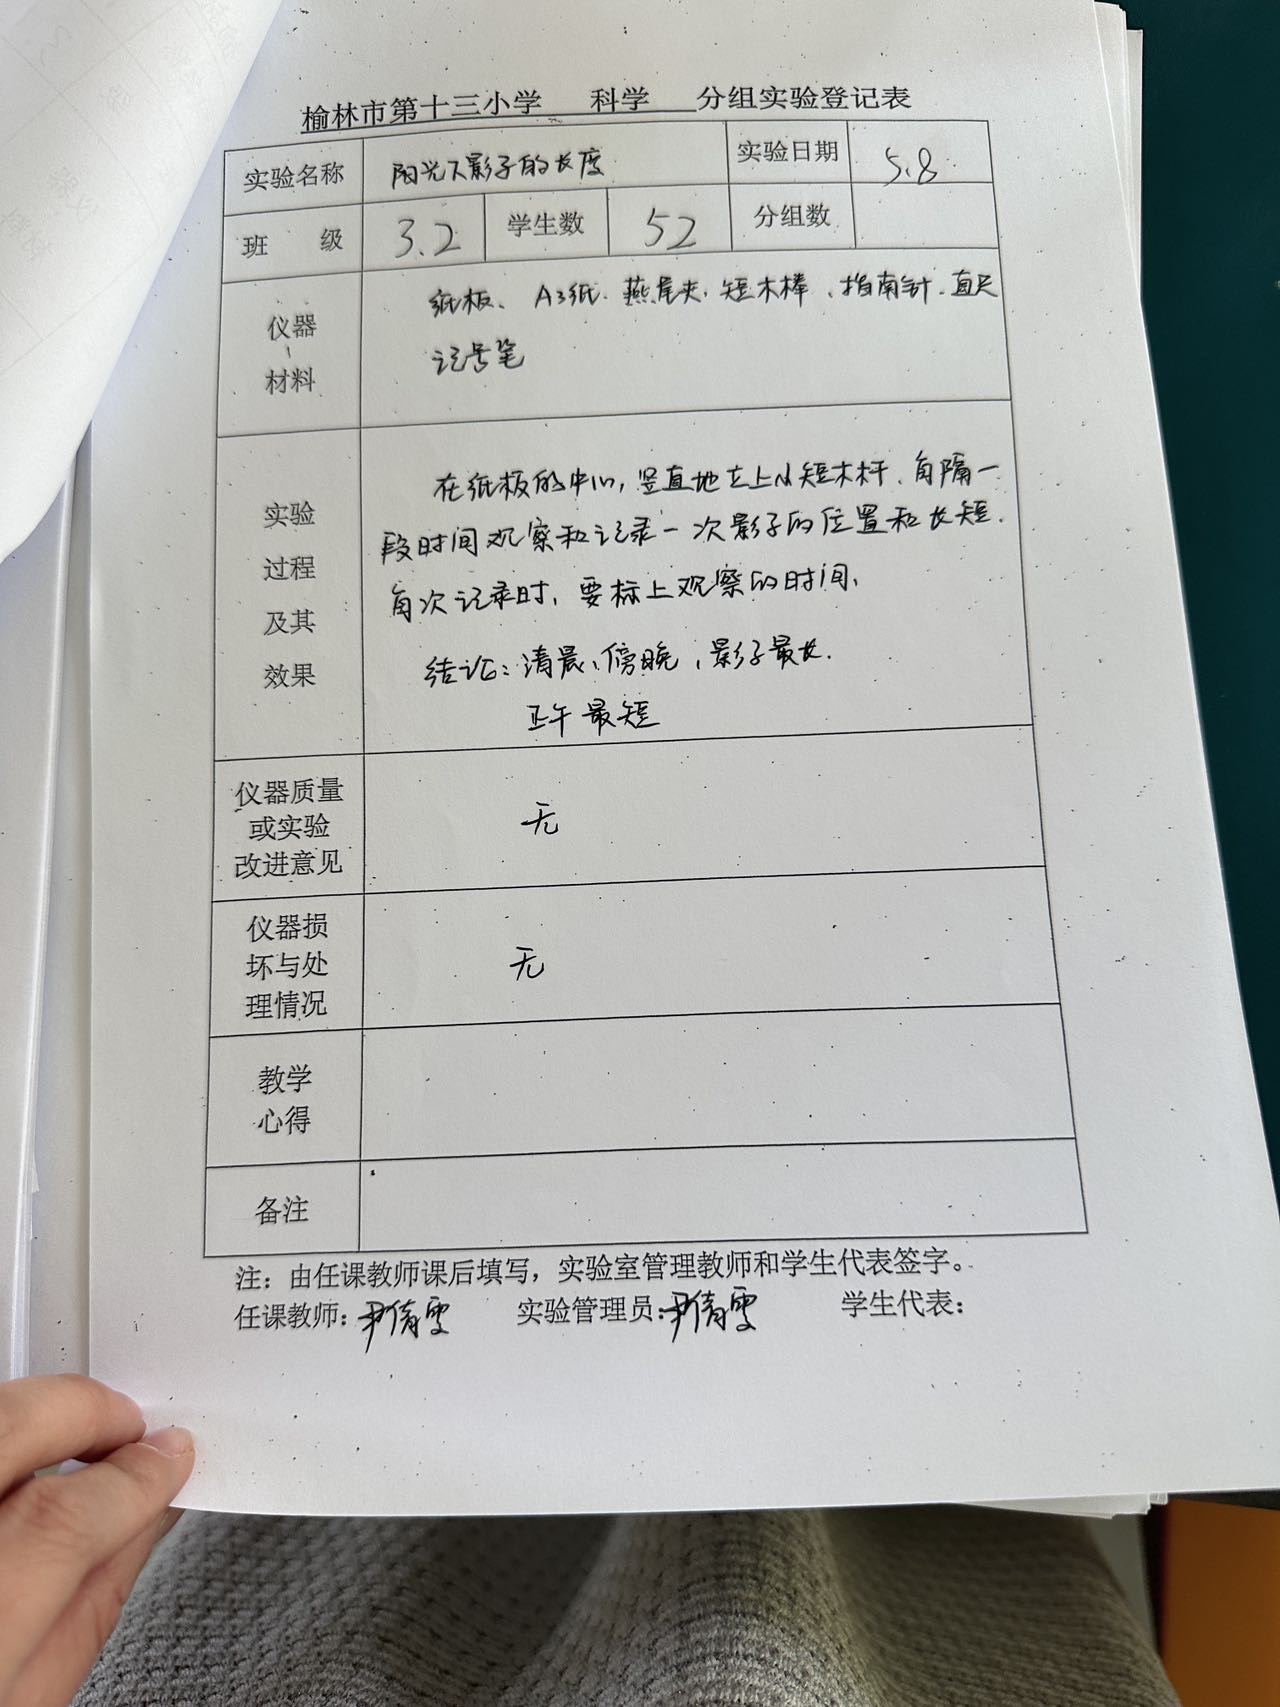 榆林市第十三小学 科学 分组实验登记表
实验名称 阳光下影子的长度 实验日期 5.8
班 级 3.2 学生数 52 分组数
仪器 材料
纸板、A3纸、燕尾夹、短木棒、指南针、直尺
记号笔
实验 过程 及其 效果
在纸板的中心,竖直地立上小短木杆、每隔一
段时间观察和记录一次影子的位置和长短.
每次记录时,要标上观察的时间、
结论:清晨、傍晚,影子最长.
正午最短
仪器质量
或实验
改进意见
无
仪器损
坏与处
理情况
无
教学
心得
备注
注:由任课教师课后填写,实验室管理教师和学生代表签字。
任课教师:尹倩雯 实验管理员:尹倩雯 学生代表: